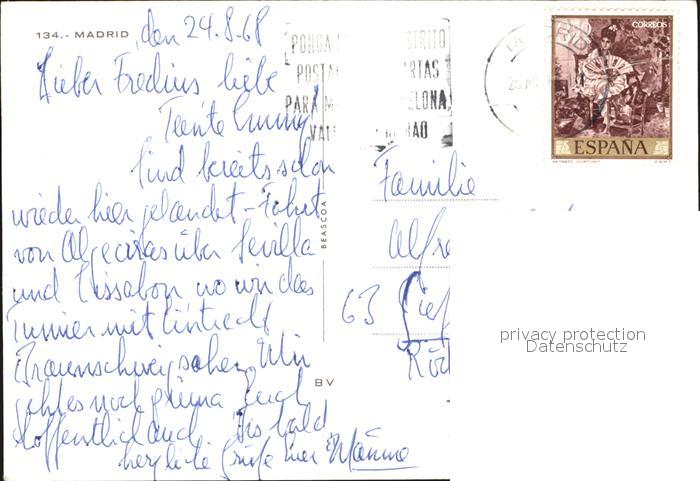 134.- MADRID
den 24.8-68
Lieber Fredius liebe
Tante Emmy!
Sind bereits schon
wieder hier gelandet - Fahrt
von Algeciras über Sevilla
und Lissabon wo wir das
Turnier mit Eintracht
Braunschweig sahen. Uns
geht es noch prima Euch
hoffentlich auch Bis bald
herzliche Grüße
BEASCOA
BV
PONGA DISTRITO
POSTAL CARTAS
PARA
CORREOS
ESPAÑA
Familie
Alfre
63
privacy protection
Datenschutz